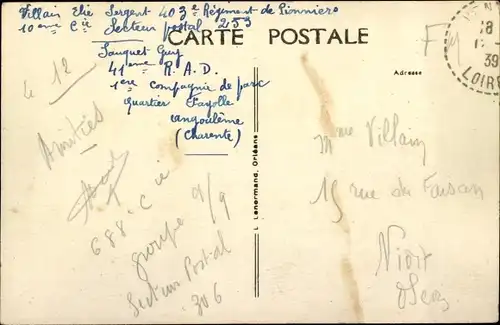 Villain Elie Sergent 403e Régiment de Pionniers
10ème Cie Secteur postal 253
CARTE POSTALE
Sauquet Guy
41ème R.A.D.
1ère compagnie de parc
quartier Fayolle
angoulême
(Charente)
Adresse
le 12
Amitiés
688 Cie
groupe 9/9
Secteur Postal
306
L. Lenormand, Orléans
Mme Villain
15 rue du Faisan
Niort
18
39
LOIRE